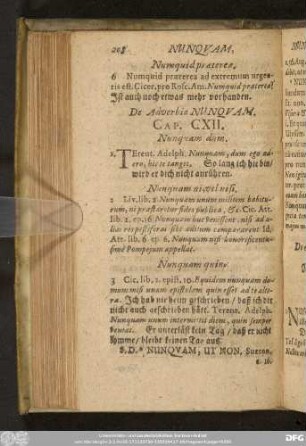 208 NUNQVAM.
Numquid præterea.
6 Numquid præterea ad extremum urgen-
tis est. Cicer. pro Rosc. Am. Numquid præterea?
Ist auch noch etwas mehr vorhanden.
De Adverbio NUNQVAM,
CAP. CXII.
Nunquam dum.
1. TErent. Adelph. Nunquam, dum ego ad-
ero, hic te tanget. So lang ich hie bin/
wird er dich nicht anrühren.
Nunquam ni, vel nisi.
2 Liv. lib. 2. Nunquam unum militem habitu-
rum, ni præstaretur fides publica, &c. Cic. Att.
lib. 2.
Att. lib. 6. ep. 6. Nunquam nisi honorificentis-
simè Pompejum appellat.
Nunquam quin.
3 Cic. lib. 2. epist. 10. Equidem nunquam do-
mum misi unam epistolam quin esset ad te alte-
ra. Ich hab nie heim geschrieben / daß ich dir
nicht auch geschrieben hätt. Terent. Adelph.
Nunquam unum intermittit diem, quin semper
veniat. Er unterläst kein Tag / daß er nicht
komme / bleibt keinen Tag aus.
S. D.* NUNQVAM, UT NON, Sueton.